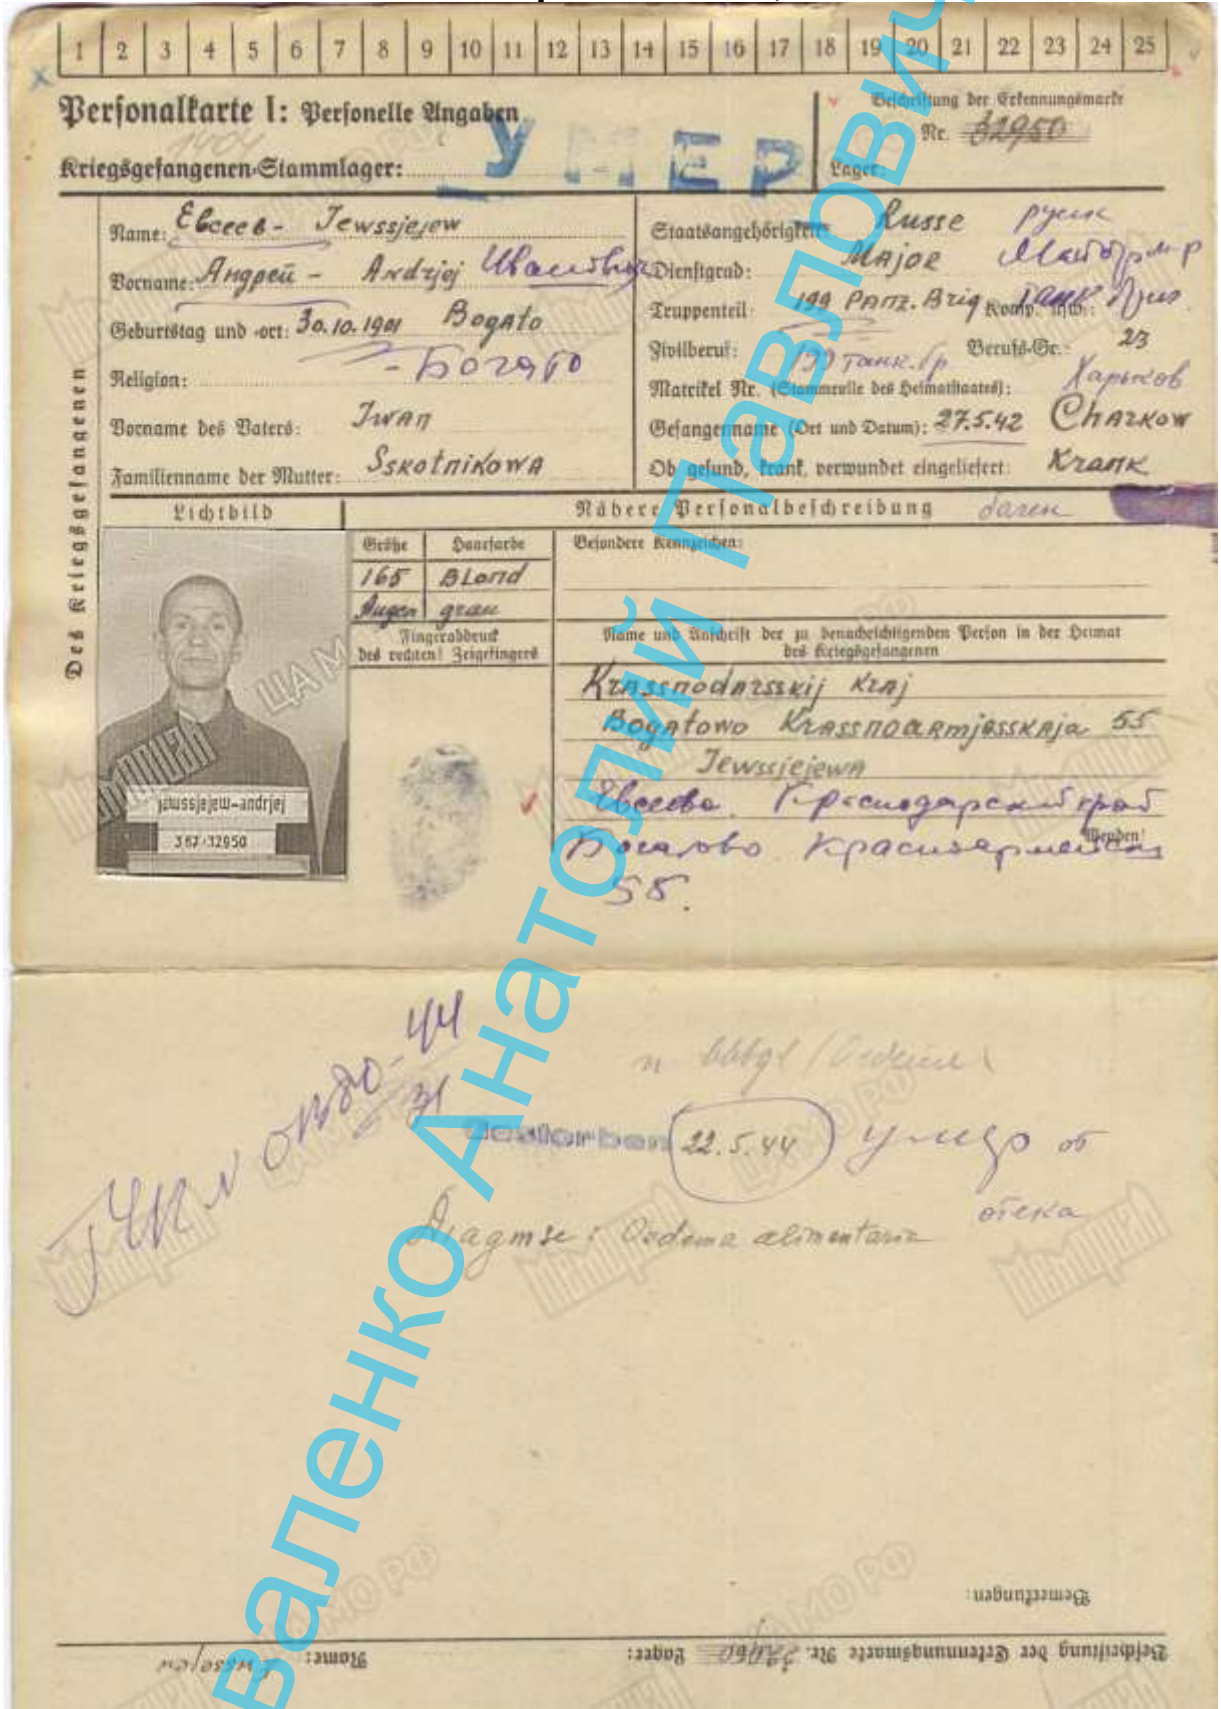 1 2 3 4 5 6 7 8 9 10 11 12 13 14 15 16 17 18 19 20 21 22 23 24 25
Personalkarte I: Personelle Angaben
Beschriftung der Erkennungsmarke
Nr. 32950
Kriegsgefangenen-Stammlager:
УМЕР
Lager:
Des Kriegsgefangenen
Name: Евсеев - Jewssjejew
Vorname: Андрей - Andrjej Иванович
Geburtstag und -ort: 30.10.1901 Bogato
- Богато
Religion:
Vorname des Vaters: Iwan
Familienname der Mutter: Sskotnikowa
Staatsangehörigkeit: Russe русск
Dienstgrad: Major Майор
Truppenteil: 199 Panz. Brig Komp. usw.:
Zivilberuf: 199 танк. бр Berufs-Gr.: 23
Matrikel Nr. (Stammrolle des Heimatstaates): Харьков
Gefangennahme (Ort und Datum): 27.5.42 Charkow
Ob gesund, krank, verwundet eingeliefert: Krank
Lichtbild
Nähere Personalbeschreibung
Größe Haarfarbe
165 Blond
Augen grau
Fingerabdruck
des rechten! Zeigefingers
Besondere Kennzeichen:
Name und Anschrift der zu benachrichtigenden Person in der Heimat
des Kriegsgefangenen
Krassnodarsskij Kraj
Bogatowo Krassnoarmjesskaja 55
Jewssjejewa
Евсеева Краснодарский край
Wenden!
Богатово Красноармейская
55.
jewssjejew-andrjej
367/32950
44
Gestorben 22.5.44 умер от
отека
Diagnose: Oedema alimentaria
Bemerkungen:
Beschriftung der Erkennungsmarke Nr. 32950 Lager: Name: Ewssejew
ЦАМО РФ
Мемориал
валенко Анатолий Павлович